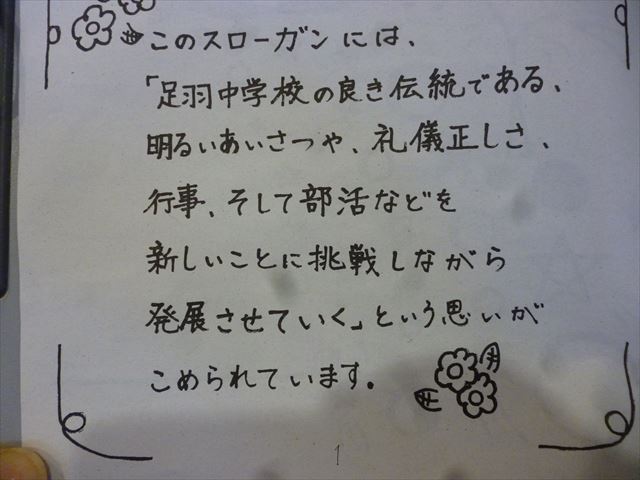 このスローガンには、
「足羽中学校の良き伝統である、
明るいあいさつや、礼儀正しさ、
行事、そして部活などを
新しいことに挑戦しながら
発展させていく」という思いが
こめられています。
1